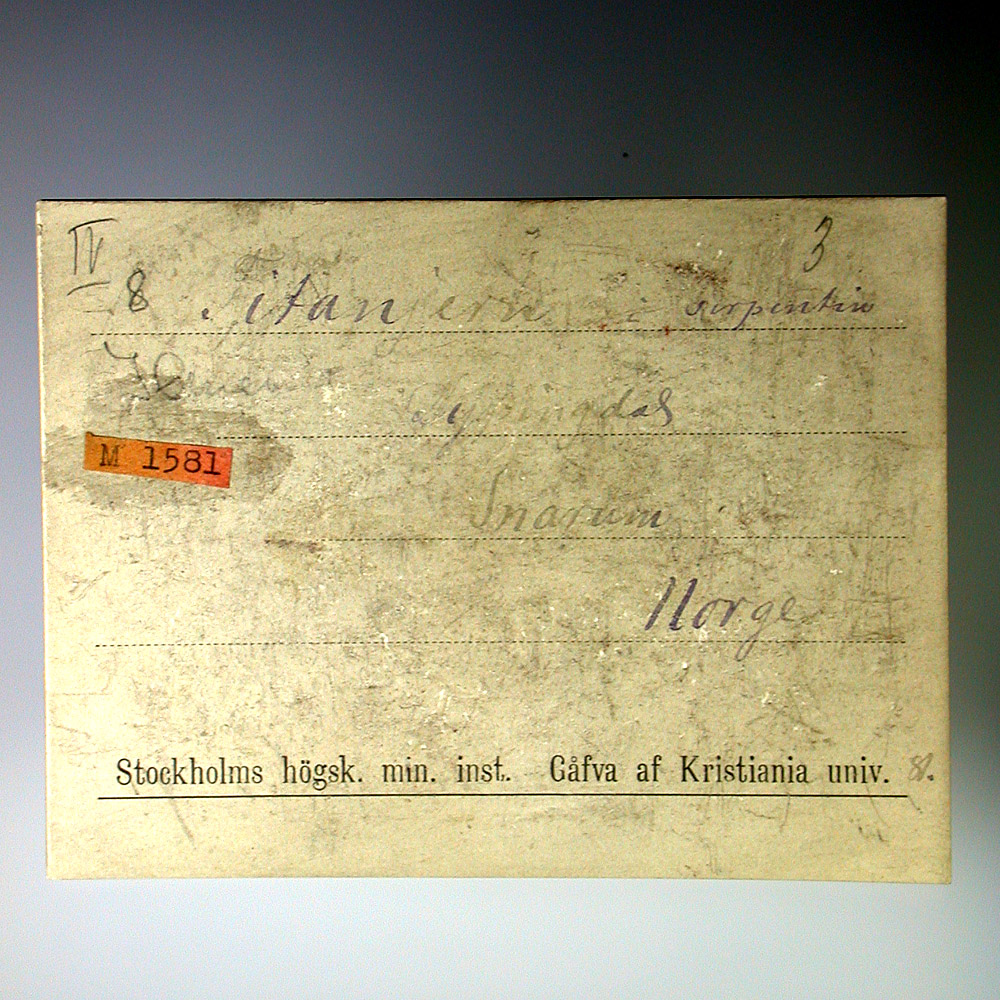 IV 3
8 Titanjern i serpentin
Ilmenit
M 1581
Snarum
Norge
Stockholms högsk. min. inst. Gåfva af Kristiania univ. 81.